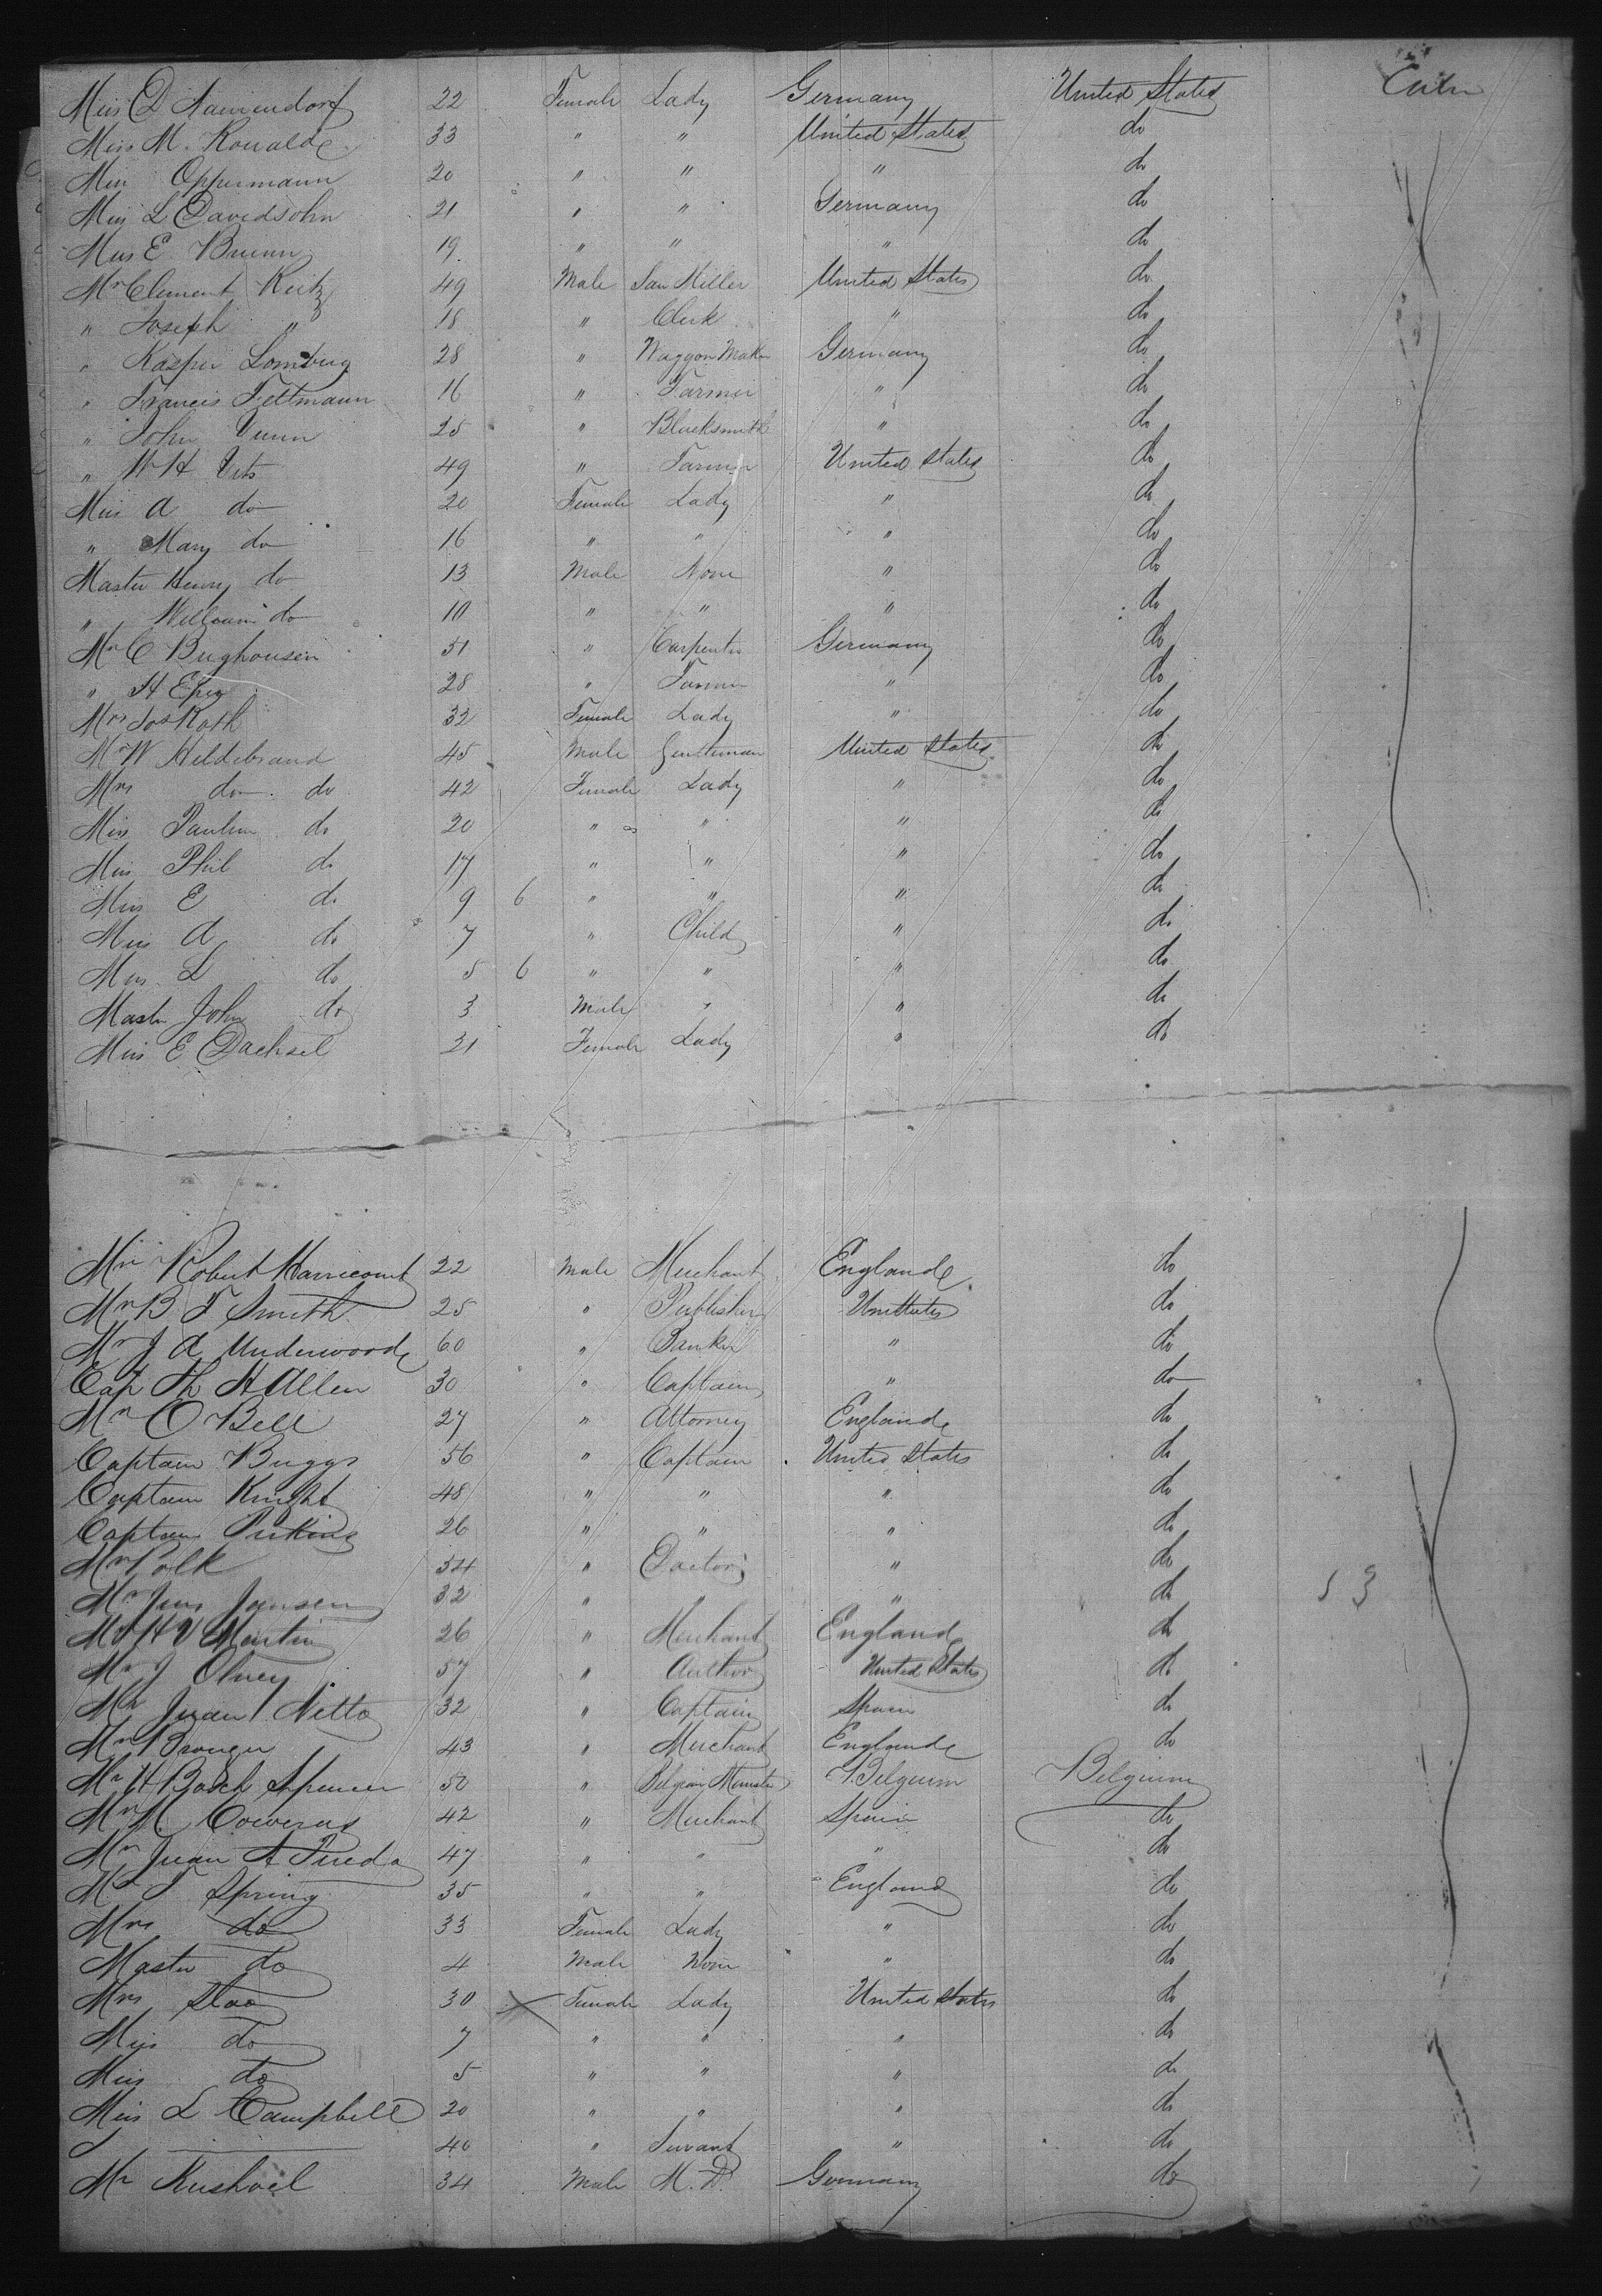 Miss D Naurendorf 22 Female Lady Germany United States Cabin
Miss M. Ronalde 33 " " United States do
Miss Oppermann 20 " " " do
Miss L Davidsohn 21 " " Germany do
Miss E Brunn 19 " " " do
Mr Clement Reitz 49 Male Saw Miller United States do
" Joseph " 18 " Clerk " do
" Kasper 28 " Waggon Maker Germany do
" Francis Fettmann 16 " Farmer " do
" John 25 " Blacksmith " do
" W H Vits 49 " Farmer United States do
Miss A do 20 Female Lady " do
" Mary do 16 " " " do
Master Henry do 13 Male None " do
" William do 10 " " " do
Mr C Bughousen 51 " Carpenter Germany do
" H Epey 28 " Farmer " do
Mrs Jos Roth 32 Female Lady " do
Mr W Hildebrand 45 Male Gentleman United States do
Mrs do do 42 Female Lady " do
Miss Paulin do 20 " " " do
Miss Phil do 17 " " " do
Miss E do 9 6 " " " do
Miss A do 7 " Child " do
Miss L do 5 6 " " " do
Mastr John do 3 Male " " do
Miss E Dachsel 21 Female Lady " do
Mr Robert Harricourt 22 Male Merchant Englande do
Mr B F Smith 25 " Publisher do
Mr J A Underwoode 60 " Banker " do
Cap Th H Allen 30 " Captain " do
Mr O Bell 27 " Attorney Englande do
Captain Buggs 56 " Captain United States do
Captain Knight 48 " " " do
Captain Perkins 26 " " " do
Mr Polk 34 " Doctor " do
Mr Jens Jansen 32 " " " do 53
Mr H V Martin 26 " Merchant England do
Mr J Olney 57 " Author United States do
Mr Juan Nitto 32 " Captain Spain do
Mr 43 " Merchant Englande do
Mr H Bosch Spencer 50 " Belgian Minister Belgium Belgium
Mr M 42 " Merchant Spain do
Mr Juan A Pineda 47 " " " do
Mr F Spring 35 " " England do
Mrs do 33 Female Lady " do
Master do 4 Male None " do
Mrs 30 Female Lady United States do
Miss do 7 " " " do
Miss do 5 " " " do
Miss L Campbell 20 " " " do
40 " Servant " do
Mr 34 Male M.D. Germany do